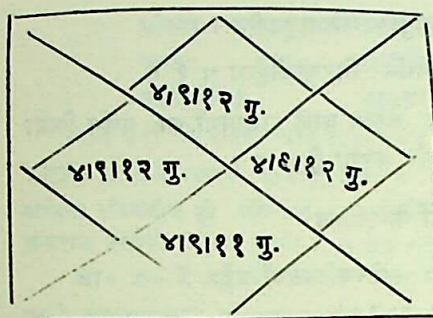 ४।९।१२ गु.
४।९।१२ गु.
४।६।१२ गु.
४।९।११ गु.